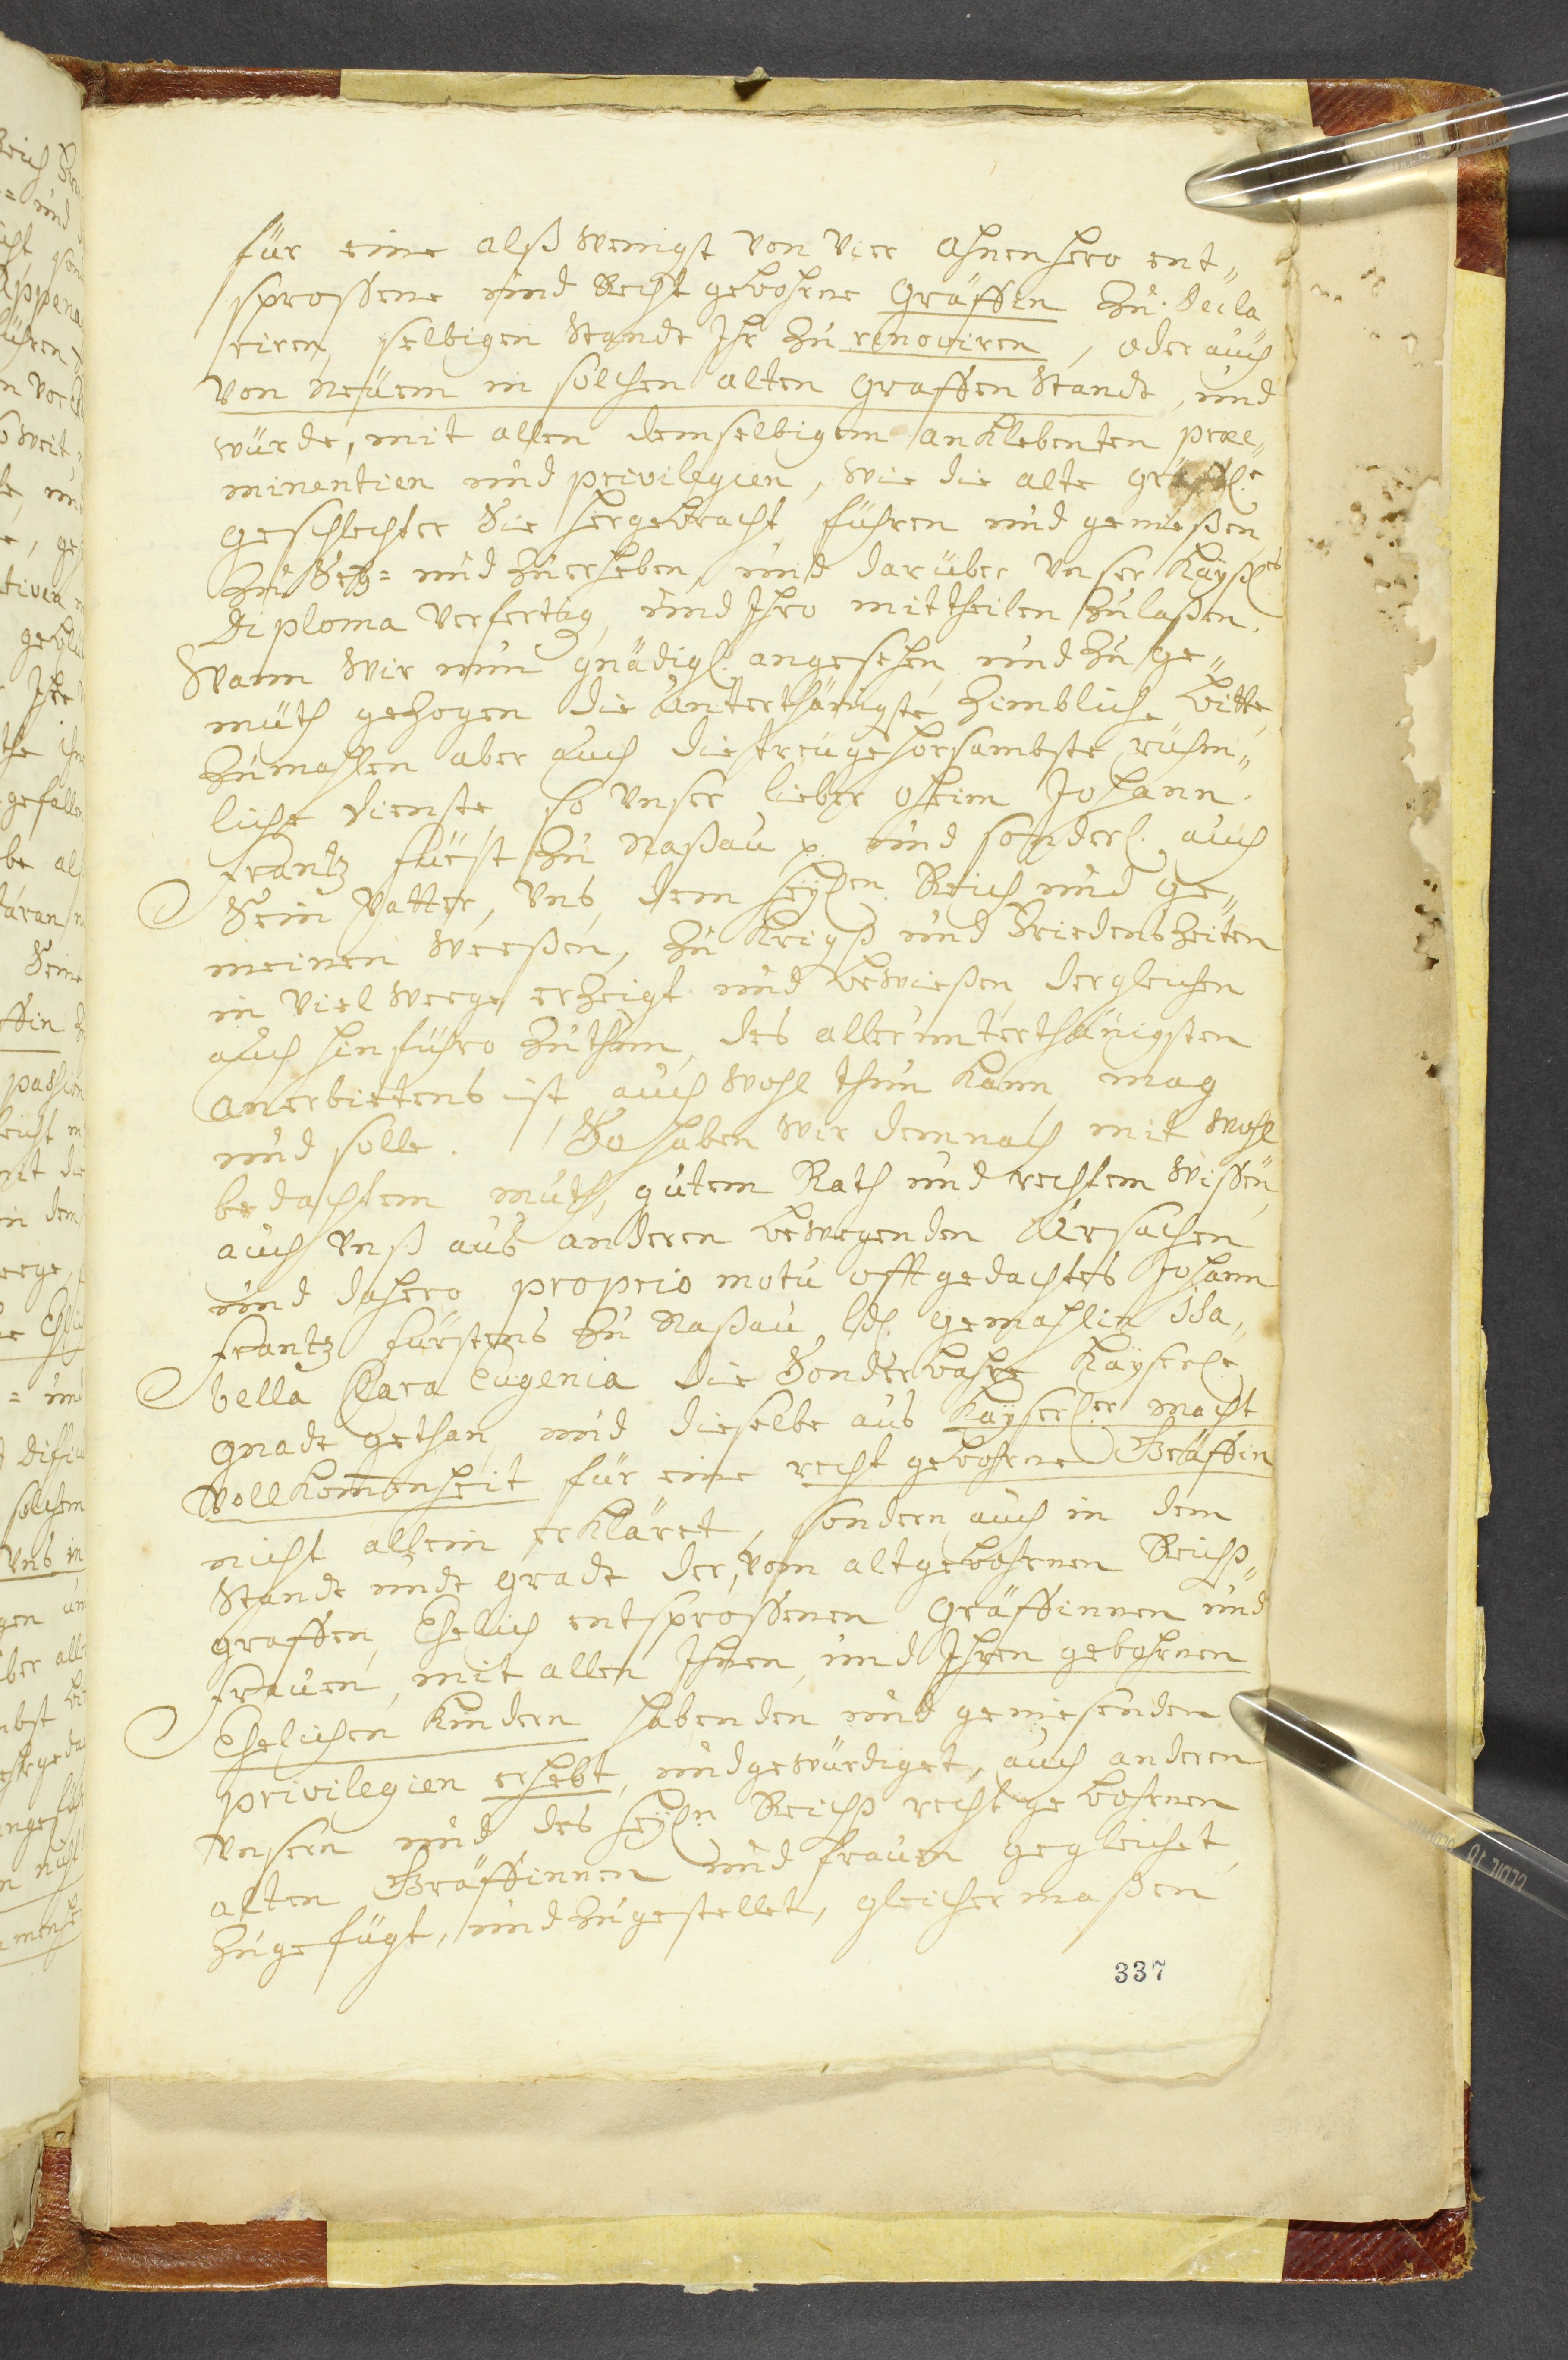 für eine alß wenigst von vier ahnen hero ent„
sproßene und Recht gebohrne Gräffin zu decla„
riren, selbigen Standt Ihr zu renoviren, oder auch
von neüem in solchen alten Graffen Standt, und
würde, mit allen demselbigem anklebenten præe„
minentien und privilegien, wie die alte
geschlechter Sie hergebracht, führen und genießen
zu Setz= und zuerheben, und darüber Unser Kayßl.es
Diploma verfertig, und Ihro mittheilen zulaßen.
Wann Wir nun gnädigl. angesehen, und zu ge„
müth gezogen die unterthänigste zimbliche bitte,
zumahlen aber auch die treügehorsambste rühm„
liche dienste, so Unser lieber oheim Johann
Frantz fürst zu Naßau p. und sonderl. auch
Sein Vatter, Uns, dem heyl.n Reich und ge„
meinen Weeßen, zu Kriegß und Friedenszeiten
in viel weege erzeigt und bewießen, dergleichen
auch hinführo zuthun, des allerunterthänigsten
anerbietens ist, auch wohl thun kann, mag
und solle. So haben wir demnach mit wohl
bedachtem muth, gutem Rath und rechtem wißen,
auch Unß aus anderen bewegenden Ursachen
und dahero proprio motu offtgedachtes Johann
Frantz fürstens zu Naßau Ld. gemahlin Isa„
bella Clara Eugenia die Sonderbahre Kayserl.e
gnade gethan, und dieselbe aus Kayserl.er macht
Vollkommenheit für eine recht gebohrne Gräffin
nicht allein erkläret, sondern auch in dem
Standt undt gradt der, vom altgebohrnen Reichß„
graffen, Ehelich entsproßenen Gräffinnen und
frauen, mit allen Ihnen, und Ihren gebohrnen
Ehelichen Kindern habenden und geniesenden
privilegien erhebt, und gewürdiget, auch anderen
Unsern und des heyl.n Reichß recht gebohrnen
alten Gräffinnen und frauen gegleichet,
zugefügt, und zugestellet, gleicher maßen
337